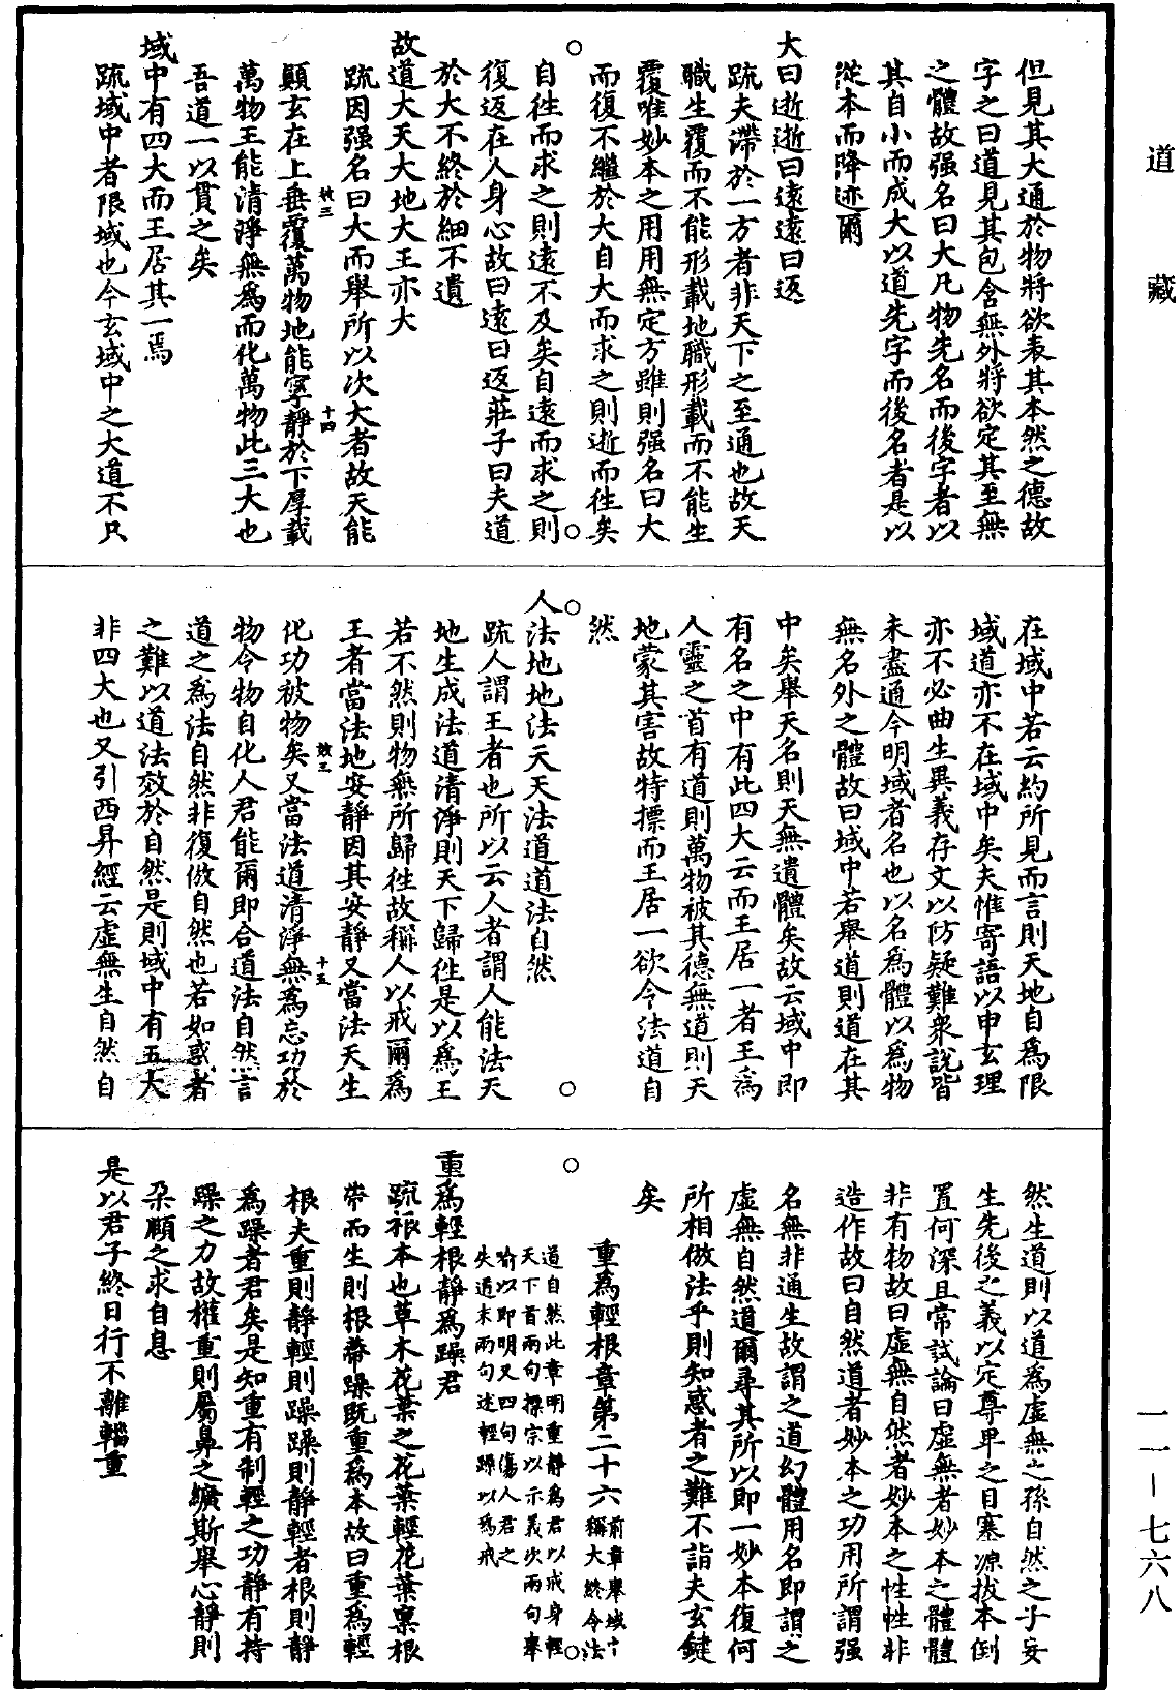 道藏
但見其大通於物將欲表其本然之德故
字之曰道見其包含無外將欲定其至無
之體故强名曰大凡物先名而後字者以
其自小而成大以道先字而後名者是以
從本而降迹爾
大曰逝逝曰遠遠曰返
䟽夫滯於一方者非天下之至通也故天
職生覆而不能形載地職形載而不能生
覆唯妙本之用用無定方雖則强名曰大
而復不繼於大自大而求之則逝而往矣
自往而求之則遠不及矣自遠而求之則
復返在人身心故曰遠曰返莊子曰夫道
於大不終於細不遺
故道大天大地大王亦大
䟽因强名曰大而舉所以次大者故天能
十四
顛玄在上垂覆萬物地能寧靜於下厚載
萬物王能清淨無爲而化萬物此三大也
吾道一以貫之矣
域中有四大而王居其一焉
䟽域中者限域也今玄域中之大道不只
在域中若云約所見而言則天地自爲限
域道亦不在域中矣夫惟寄語以申玄理
亦不必曲生異義存文以防疑難衆說皆
未盡通今明域者名也以名爲體以爲物
無名外之體故曰域中若舉道則道在其
中矣舉天名則天無遺體矣故云域中即
有名之中有此四大云而王居一者王爲
人靈之首有道則萬物被其德無道則天
地蒙其害故特摽而王居一欲令法道自
然
人法地地法天天法道道法自然
䟽人謂王者也所以云人者謂人能法天
地生成法道清淨則天下歸往是以爲王
若不然則物無所歸往故稱人以戒爾爲
王者當法地安靜因其安靜又當法天生
十五
化功被物矣又當法道清淨無爲忘功於
物令物自化人君能爾即合道法自然言
道之爲法自然非復倣自然也若如惑者
之難以道法效於自然是則域中有五大
非四大也又引西昇經云虛無生自然自
然生道則以道爲虛無之孫自然之子妄
生先後之義以定尊卑之目塞源拔本倒
置何深且常試論曰虛無者妙本之體體
非有物故曰虛無自然者妙本之性性非
造作故曰自然道者妙本之功用所謂强
名無非通生故謂之道幻體用名即謂之
虛無自然道爾尋其所以即一妙本復何
所相倣法乎則知惑者之難不詣夫玄鍵
矣
重爲輕根章第二十六
前章舉域中
稱大終令法
道自然此章明重靜爲君以戒身輕
天下首兩句摽宗以示義次兩句舉
喻以即明又四句傷人君之
失道末兩句述輕躁以爲戒
重爲輕根靜爲躁君
䟽根本也草木花葉之花葉輕花葉稟根
蔕而生則根蔕躁既重爲本故曰重爲輕
根夫重則靜輕則躁躁則靜輕者根則靜
爲躁者君矣是知重有制輕之功靜有持
躁之力故權重則屬鼻之纊斯舉心靜則
朶頤之求自息
是以君子終日行不離輜重
一一－七六八